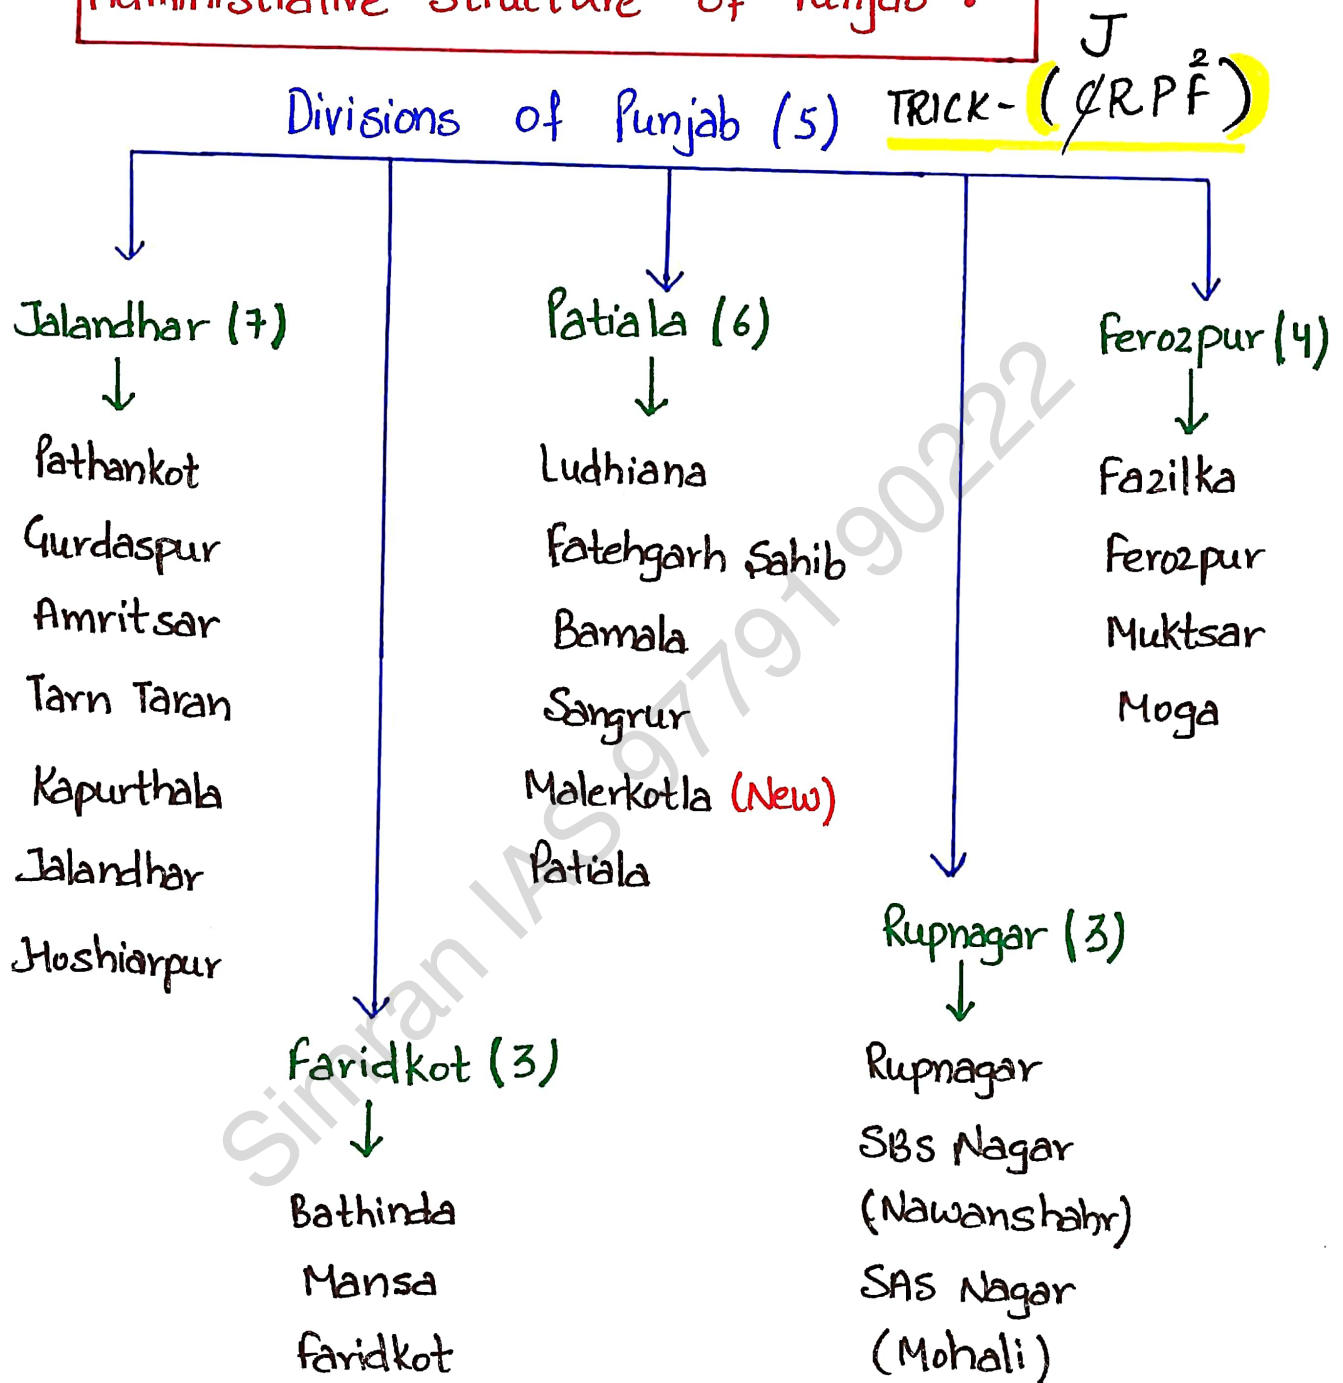 Administrative Structure of Punjab :
Divisions of Punjab (5) TRICK- (CRPF²)
J
Jalandhar (7)
Pathankot
Gurdaspur
Amritsar
Tarn Taran
Kapurthala
Jalandhar
Hoshiarpur
Faridkot (3)
Bathinda
Mansa
Faridkot
Patiala (6)
Ludhiana
Fatehgarh Sahib
Barnala
Sangrur
Malerkotla (New)
Patiala
Rupnagar (3)
Rupnagar
SBS Nagar
(Nawanshahr)
SAS Nagar
(Mohali)
Ferozpur (4)
Fazilka
Ferozpur
Muktsar
Moga
Simran IAS 97791 90222